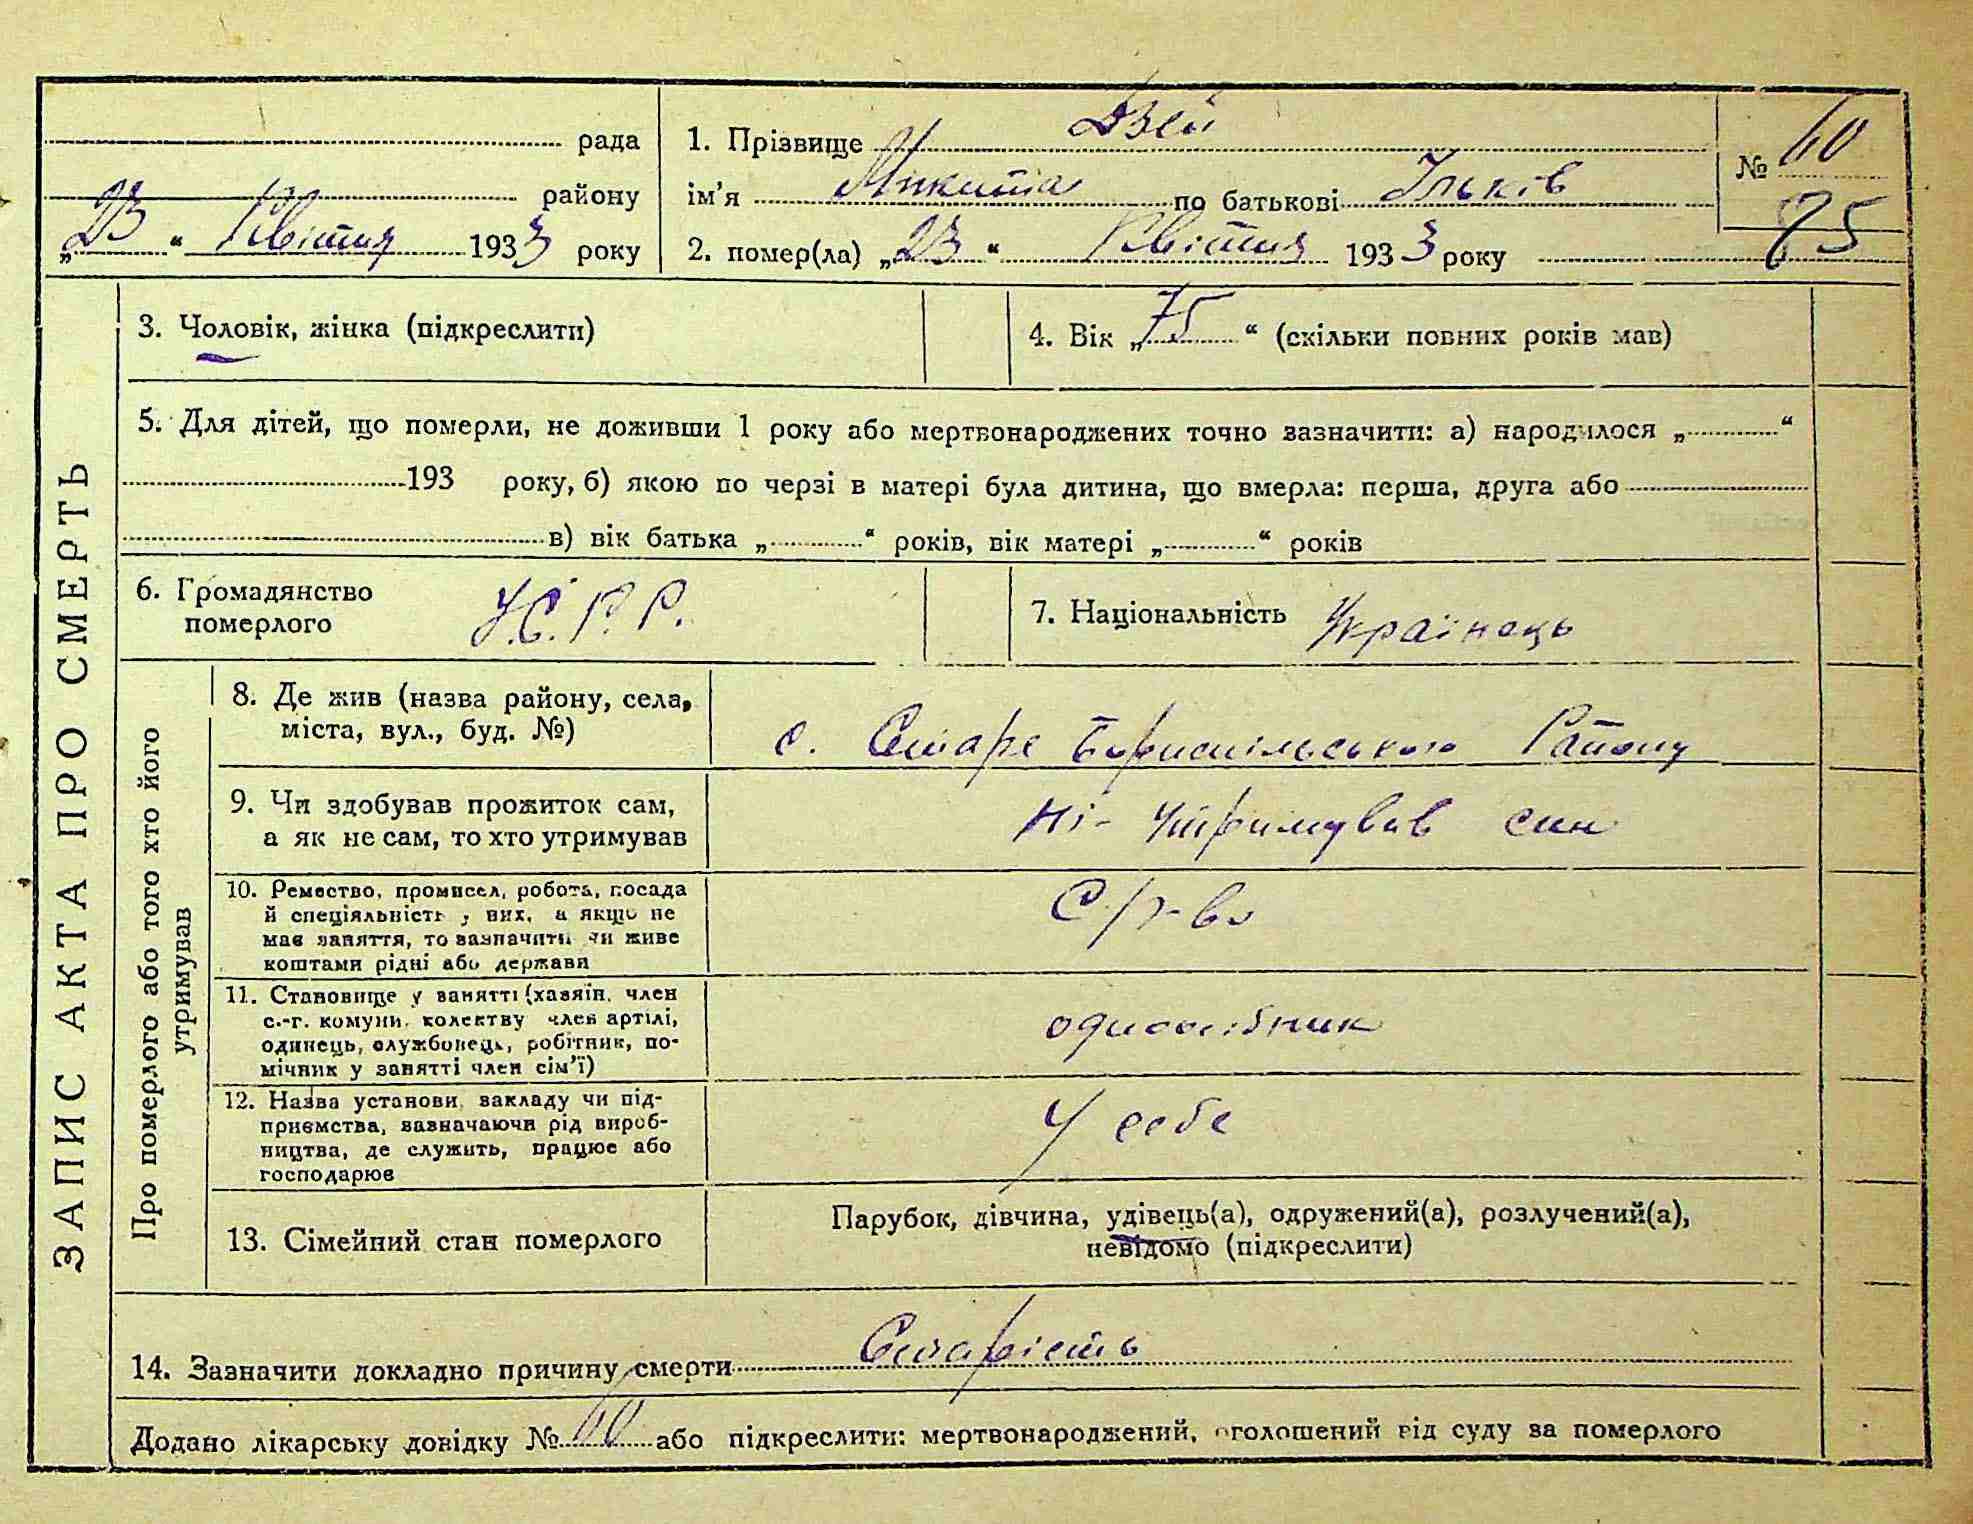 ЗАПИС АКТА ПРО СМЕРТЬ
рада
району
„23“ Квітня 1933 року
1. Прізвище Дзей
ім’я Микита по батькові Ільків
2. помер(ла) „23“ Квітня 1933 року
№ 60
85
3. Чоловік, жінка (підкреслити)
4. Вік „75“ (скільки повних років мав)
5. Для дітей, що померли, не доживши 1 року або мертвонароджених точно зазначити: а) народилося „ “
193 року, б) якою по черзі в матері була дитина, що вмерла: перша, друга або
в) вік батька „ “ років, вік матері „ “ років
6. Громадянство
померлого
У.С.Р.Р.
7. Національність Українець
Про померлого або того хто його
утримував
8. Де жив (назва району, села,
міста, вул., буд. №)
с. Старе Бориспільського Району
9. Чи здобував прожиток сам,
а як не сам, то хто утримував
Ні- Утримував син
10. Ремество, промисел, робота, посада
й спеціяльність у них, а якщо не
має заняття, то зазначити чи живе
коштами рідні або держави
С/г-во
11. Становище у занятті (хазяїн, член
с.-г. комуни, колективу член артілі,
одинець, службовець, робітник, по-
мічник у занятті член сім’ї)
одноосібник
12. Назва установи, закладу чи під-
приємства, зазначаючи рід вироб-
ництва, де служить, працює або
господарює
У себе
13. Сімейний стан померлого
Парубок, дівчина, удівець(а), одружений(а), розлучений(а),
невідомо (підкреслити)
14. Зазначити докладно причину смерти Старість
Додано лікарську довідку № 60 або підкреслити: мертвонароджений, оголошений від суду за померлого